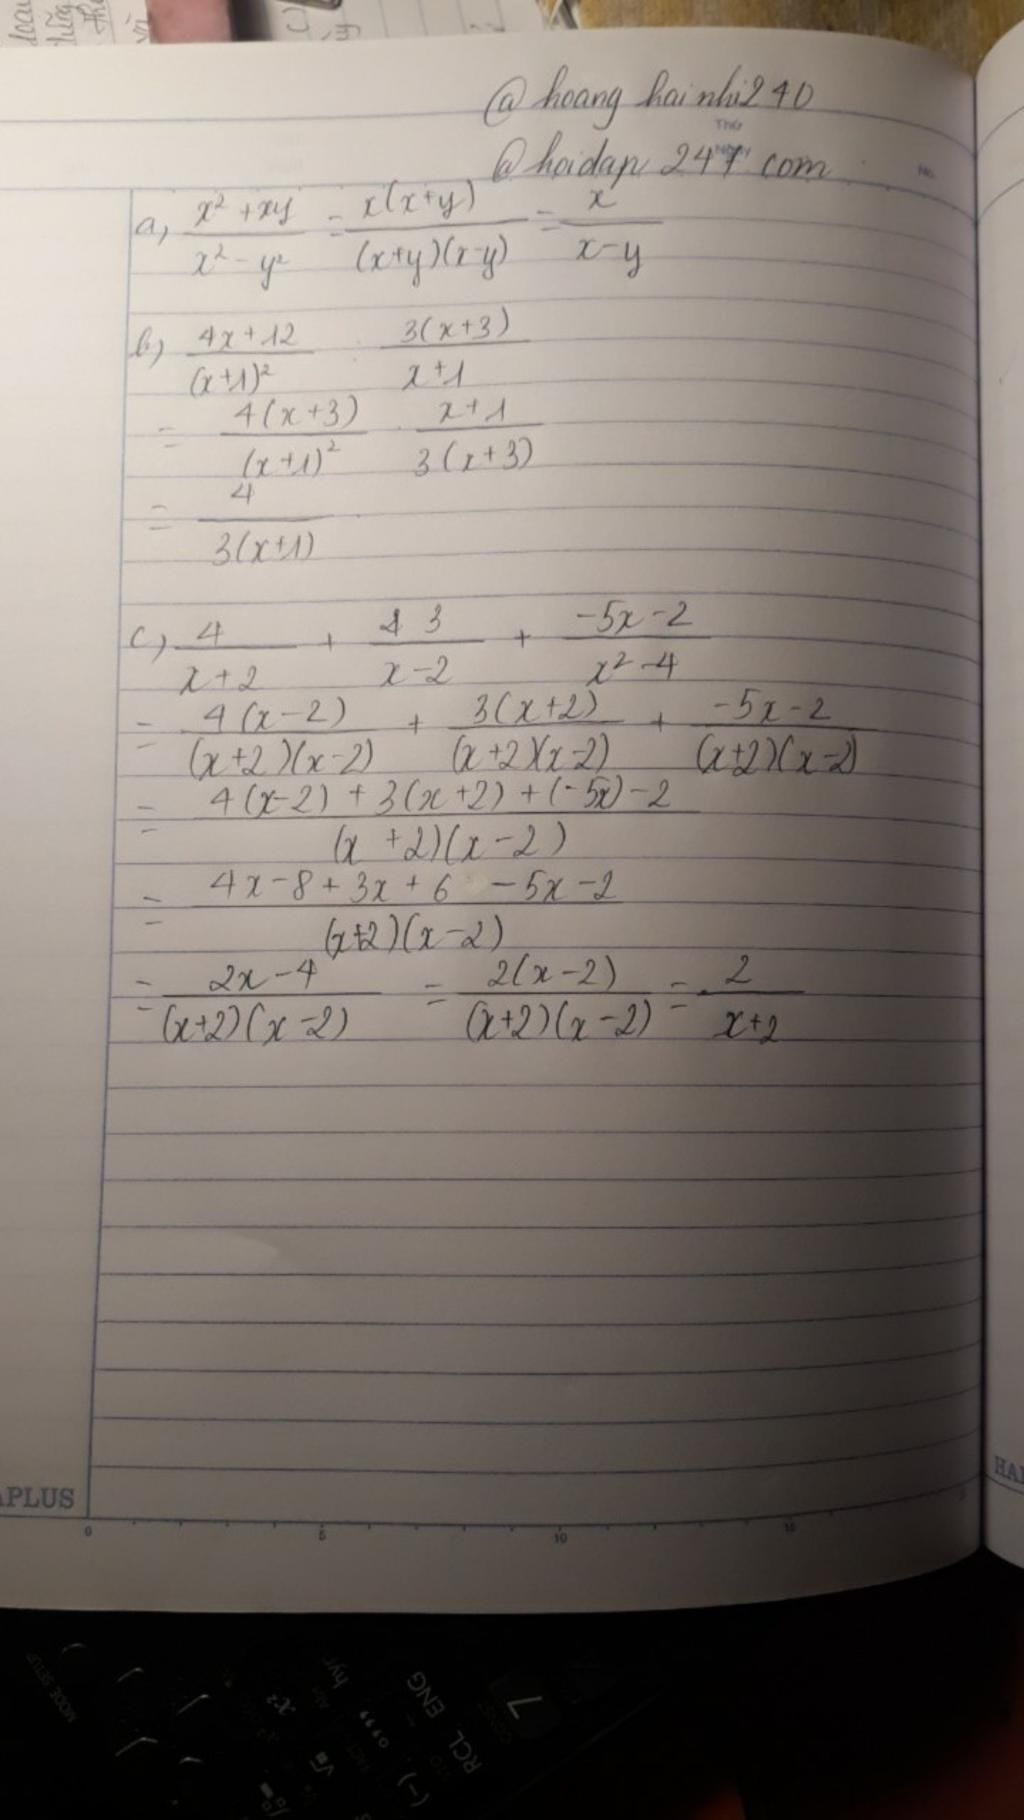 @ hoang hainhi240
THỨ
NGÀY
@hoidap 247. com
No.
a, x² + xy / x² - y² = x(x+y) / (x+y)(x-y) = x / x-y
b, 4x+12 / (x+1)² : 3(x+3) / x+1
= 4(x+3) / (x+1)² . x+1 / 3(x+3)
= 4 / 3(x+1)
c, 4 / x+2 + 3 / x-2 + -5x-2 / x²-4
= 4(x-2) / (x+2)(x-2) + 3(x+2) / (x+2)(x-2) + -5x-2 / (x+2)(x-2)
= 4(x-2) + 3(x+2) + (-5x) - 2 / (x+2)(x-2)
= 4x-8 + 3x + 6 - 5x - 2 / (x+2)(x-2)
= 2x-4 / (x+2)(x-2) = 2(x-2) / (x+2)(x-2) = 2 / x+2
PLUS
0 5 10 15
MODE SETUP
7
RCL ENG
hyp
x²
(-)